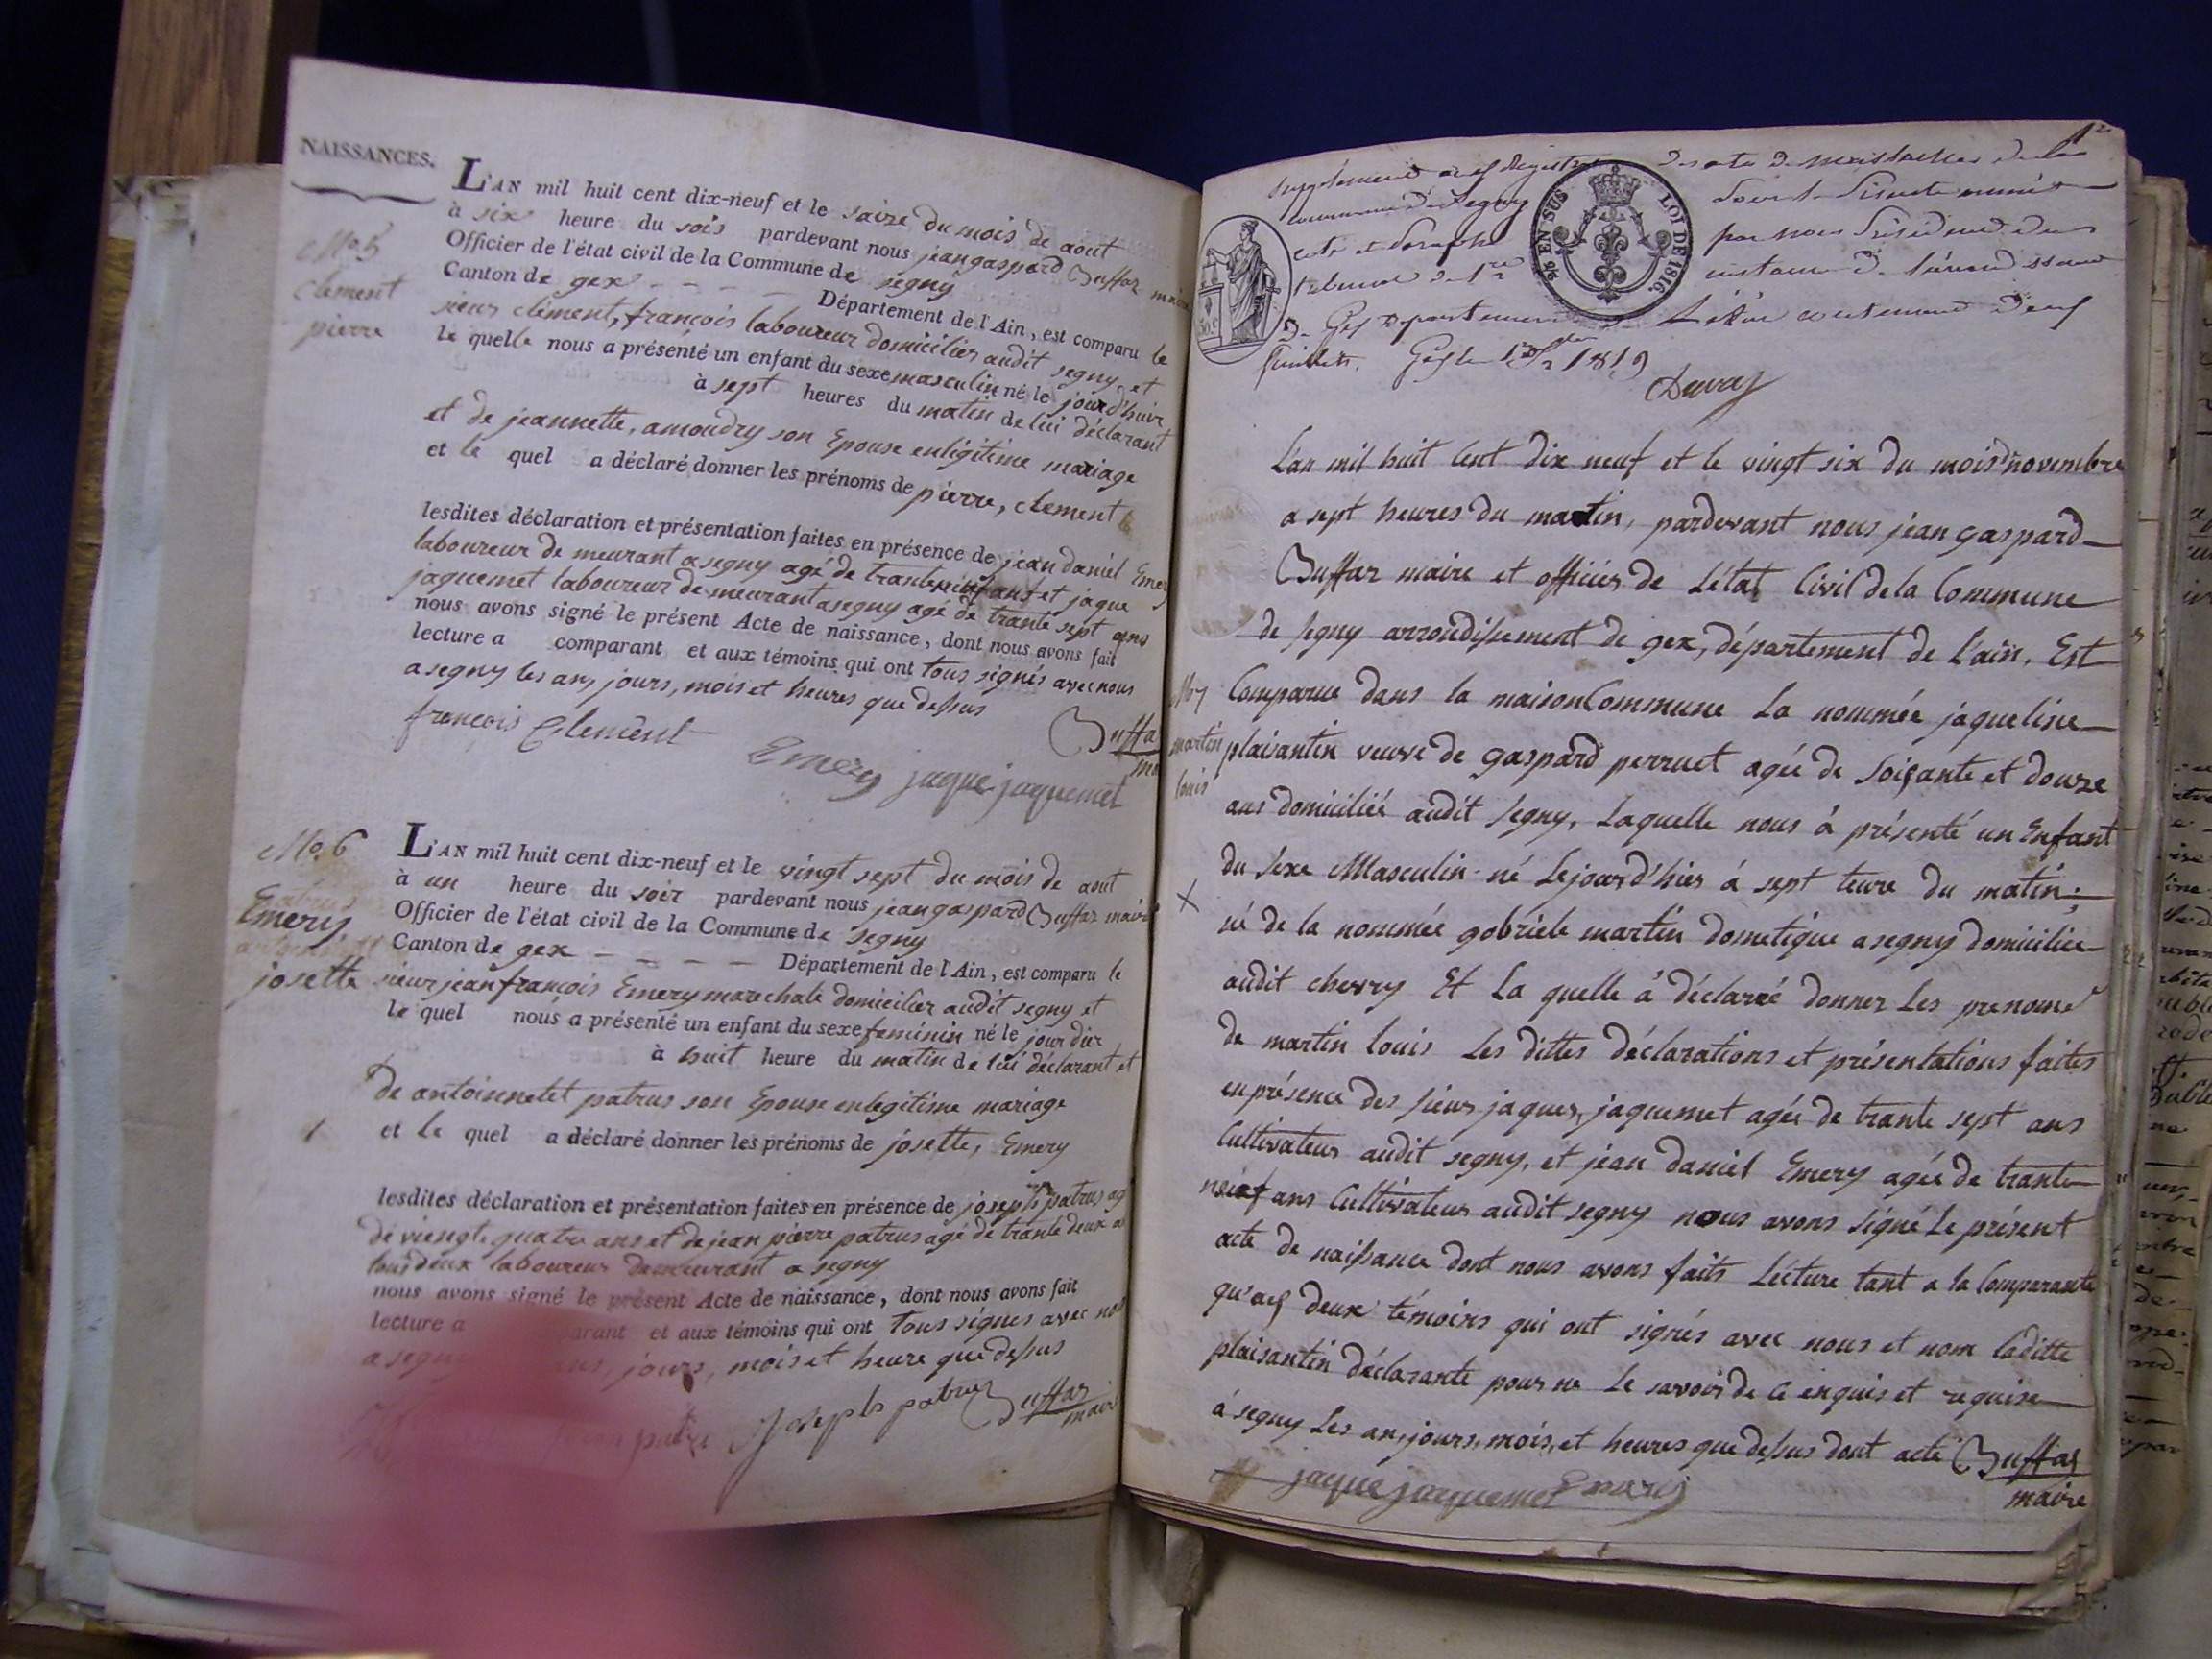 NAISSANCES.
No. 5
clement
pierre
L'AN mil huit cent dix-neuf et le saize du mois de aout
à six heure du soir pardevant nous jean gaspard Buffaz maire
Officier de l'état civil de la Commune de segny
Canton de gex - - - - Département de l'Ain, est comparu le
sieur clément, francois laboureur domicilier audit segny et
le quelle nous a présenté un enfant du sexe masculin né le jourd'huir
à sept heures du matin de lui déclarant
et de jeannette, amoudry son Epouse enligitime mariage
et le quel a déclaré donner les prénoms de pierre, clement
lesdites déclaration et présentation faites en présence de jean daniel Emery
laboureur de meurant a segny agé de trante neuf ans et jaque
jaquemet laboureur de meurant a segny agé de trante sept ans
nous avons signé le présent Acte de naissance, dont nous avons fait
lecture a comparant et aux témoins qui ont tous signés avec nous
a segny les an, jours, mois et heures que dessus
françois Clement Buffa
Emery jaque jaquemet
No. 6
Emery
josette
L'AN mil huit cent dix-neuf et le vingt sept du mois de aout
à un heure du soir pardevant nous jean gaspard Buffaz maire
Officier de l'état civil de la Commune de segny
Canton de gex - - - - Département de l'Ain, est comparu le
sieur jean francois Emery marechale domicilier audit segny et
le quel nous a présenté un enfant du sexe feminin né le jour dur
à huit heure du matin de lui déclarant et
de antoinnetet patrus son Epouse enlegitime mariage
et le quel a déclaré donner les prénoms de josette, Emery
lesdites déclaration et présentation faites en présence de joseph patrus ag
de viengt quatre ans et de jean pierre patrus agé de trante deux a
tous deux laboureur demeurant a segny
nous avons signé le présent Acte de naissance, dont nous avons fait
lecture a arant et aux témoins qui ont tous signés avec nous
a segny jours, mois et heure que dessus
Joseph patruz Buffaz
maire
96 EN SUS LOI DE 1816.
supplément au Registre des actes de naissances de la
commune de Segny
coté et paraphé par nous Président du
tribunal de 1re instance de l'arrondissement
de Gex Département de
feuillets. Gex le 1819
Duvaz
L'an mil huit Cent dix neuf et le vingt six du mois d novembre
a sept heures du matin, pardevant nous jean gaspard
Buffaz maire et officiér de L'état Civil de la Commune
de segny arrondissement de gex, département de L'ain, Est
No 7
martin
louis
Comparue dans la maison Commune La nommée jaqueline
plaisantin veuve de gaspard perruet agée de Soixante et douze
ans domiciliée audit segny, Laquelle nous à présenté un Enfant
du sexe Masculin né Lejourd'hier à sept heure du matin;
né de la nommée gobriele martin dometique a segny domiciliée
audit chevry Et La quelle à déclaré donner Les prenoms
de martin louis Les dittes déclarations et présentations faites
en présence des sieur jaques, jaquemet agée de trante sept ans
Cultivateur audit segny, et jean daniel Emery agée de trante
neuf ans Cultivateur audit segny nous avons signé Le présent
acte de naissance dont nous avons faits Lécture tant a la Comparante
qu'aux deux témoins qui ont signés avec nous et nom laditte
plaisantin déclarante pour ne Le savoir de ce enquis et requise
à segny Les an, jours, mois, et heures que dessus dont acte Buffaz
maire
jaque jaquemet Emery